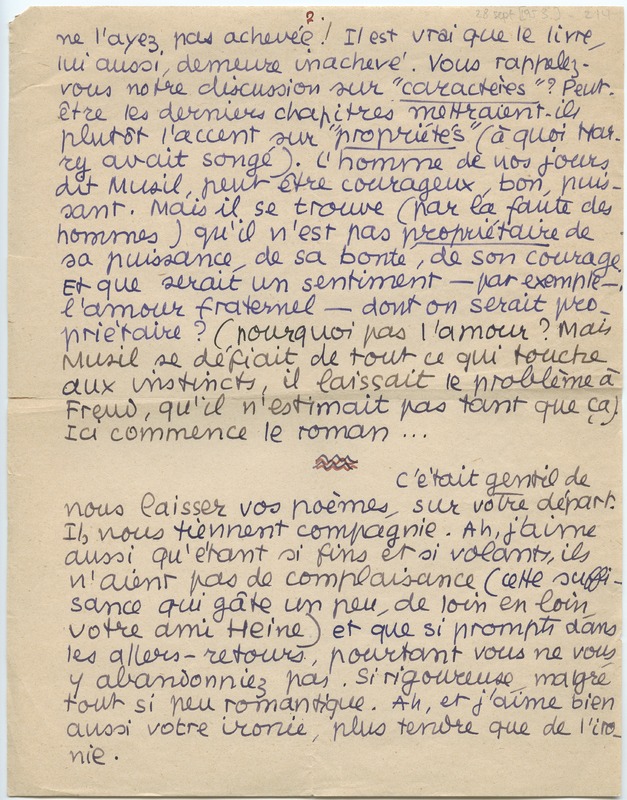 28 sept
?
ne l'ayez pas achevée! Il est vrai que le livre,
lui aussi, demeure inachevé. Vous rappelez-
vous notre discussion sur "caractères"? Peut-
être les derniers chapitres mettraient-ils
plutôt l'accent sur "propriétés" (à quoi Har-
ry avait songé). L'homme de nos jours
dit Musil, peut être courageux, bon, puis-
sant. Mais il se trouve (par la faute des
hommes) qu'il n'est pas propriétaire de
sa puissance, de sa bonté, de son courage.
Et que serait un sentiment — par exemple —
l'amour fraternel — dont on serait pro-
priétaire? (pourquoi pas l'amour? Mais
Musil se défiait de tout ce qui touche
aux instincts, il laissait le problème à
Freud, qu'il n'estimait pas tant que ça)
Ici commence le roman ...
C'était gentil de
nous laisser vos poèmes, sur votre départ.
Ils nous tiennent compagnie. Ah, j'aime
aussi qu'étant si fins et si volants, ils
n'aient pas de complaisance (cette suffi-
sance qui gâte un peu, de loin en loin,
votre ami Heine) et que si prompts dans
les allers-retours, pourtant vous ne vous
y abandonniez pas. Si rigoureuse, malgré
tout si peu romantique. Ah, et j'aime bien
aussi votre ironie, plus tendre que de l'iro-
nie.